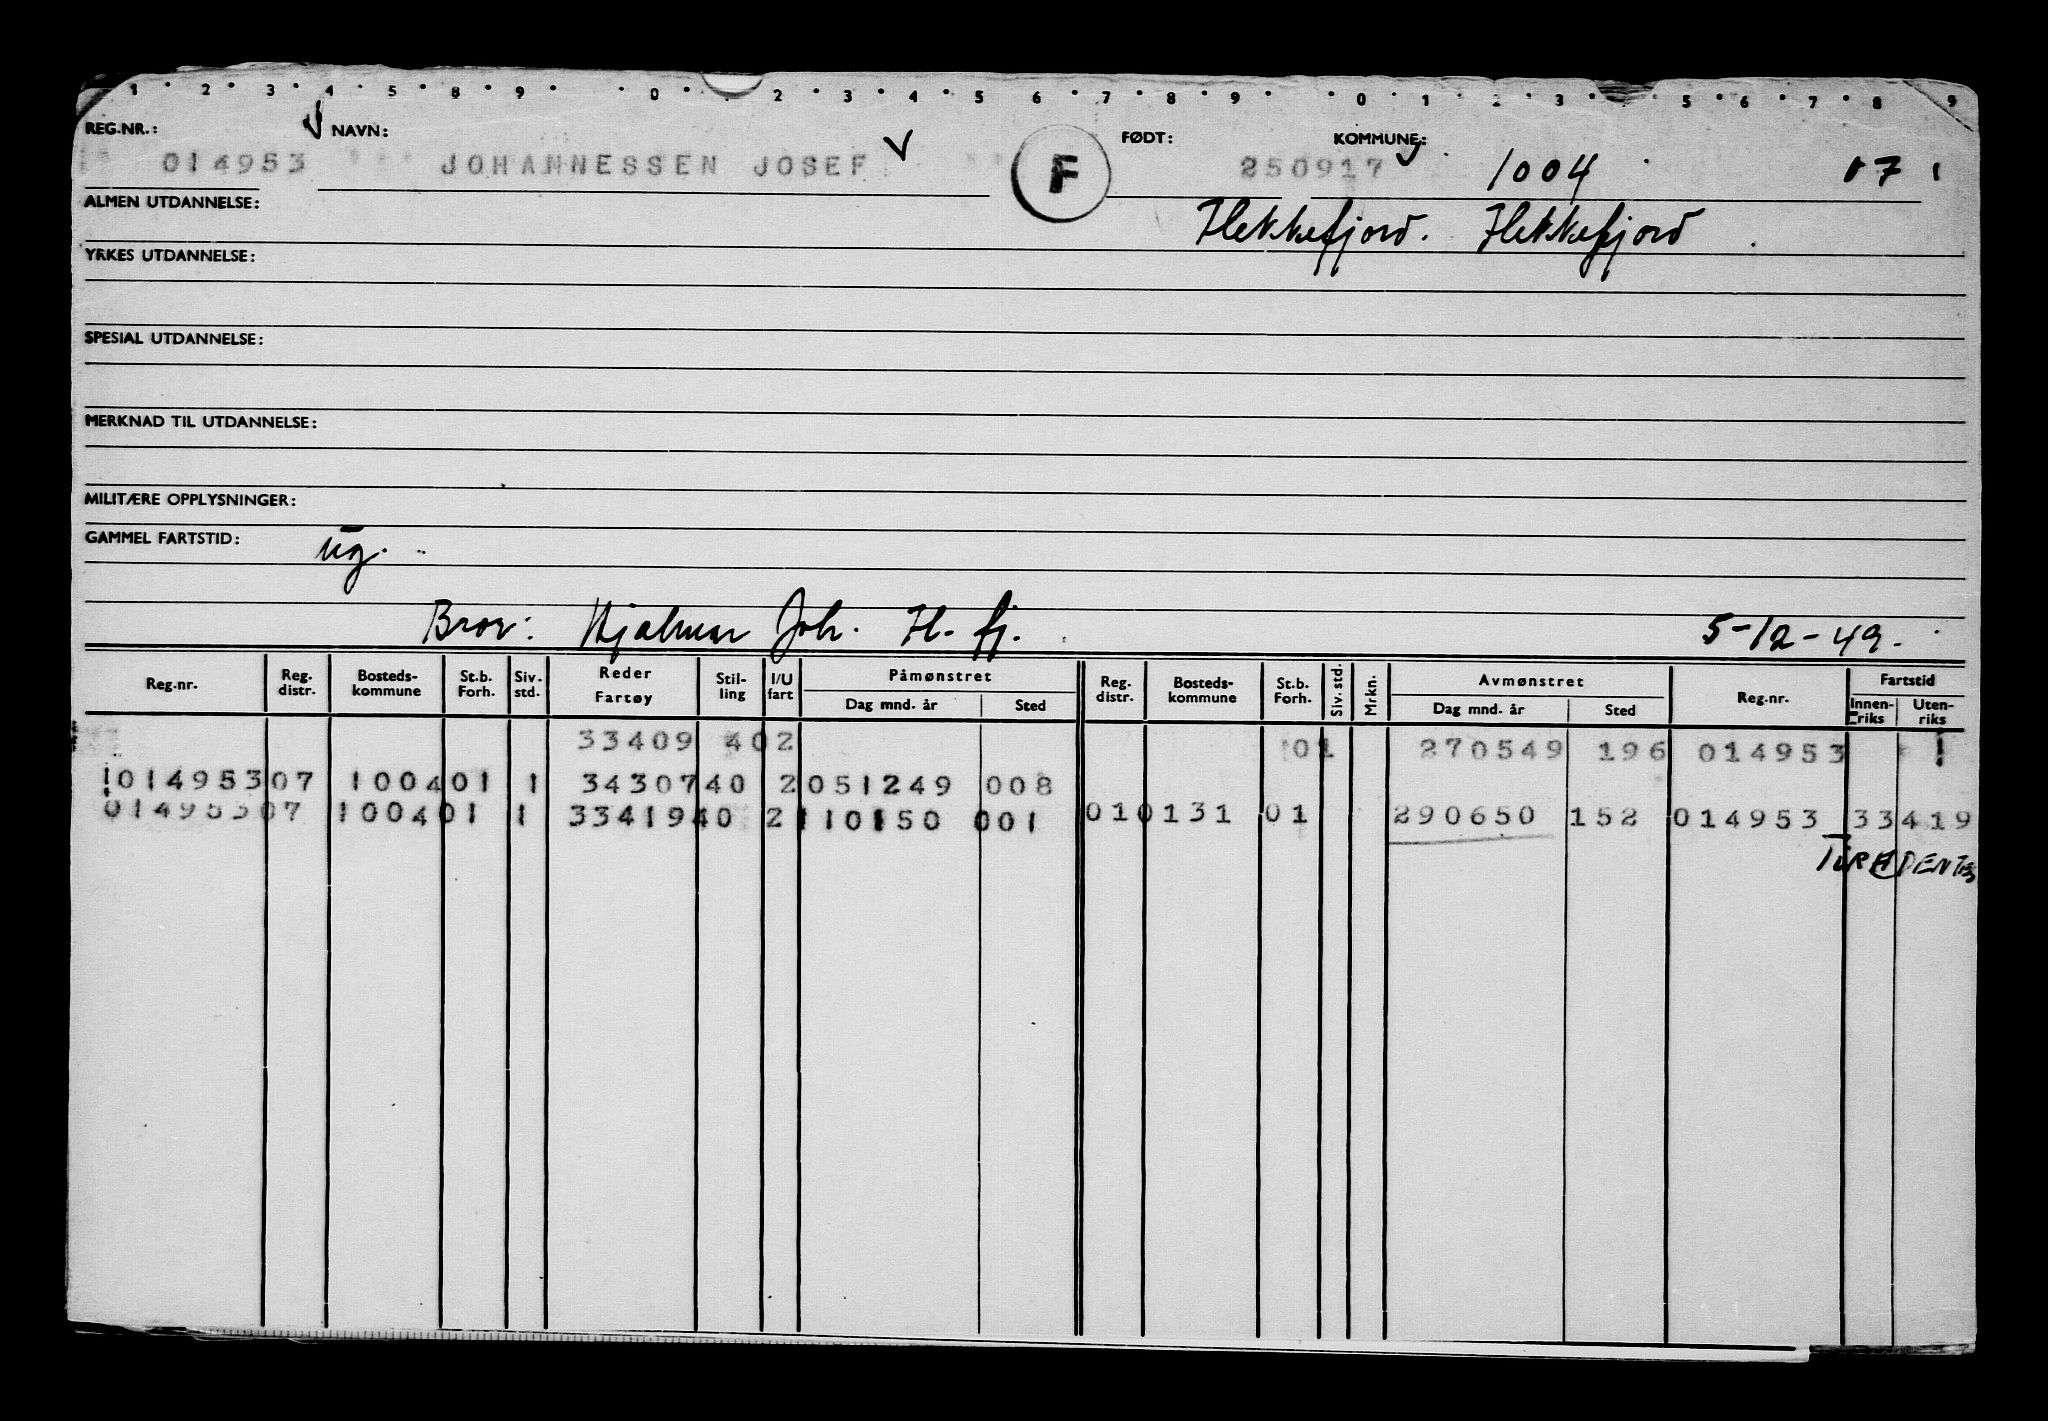 1 2 3 4 5 8 9 0 2 3 4 5 6 7 8 9 0 1 2 3 5 6 7 8 9
REG.NR.: NAVN: FØDT: KOMMUNE:
014953 JOHANNESSEN JOSEF F 250917 1004 07 1
ALMEN UTDANNELSE: Flekkefjord. Flekkefjord
YRKES UTDANNELSE:
SPESIAL UTDANNELSE:
MERKNAD TIL UTDANNELSE:
MILITÆRE OPPLYSNINGER:
GAMMEL FARTSTID: ug.
Bror: Hjalmar Joh. Fl. fj. 5-12-49.
Reg.nr. Reg. distr. Bosteds- kommune St.b. Forh. Siv. std. Reder Fartøy Stil- ling I/U fart Påmønstret Dag mnd. år Sted Reg. distr. Bosteds- kommune St.b. Forh. Siv. std. Mrkn. Avmønstret Dag mnd. år Sted Reg.nr. Fartstid Innen- riks Uten- riks
33409 40 2 01 270549 196 014953 1
014953 07 1004 01 1 34307 40 2 051249 008
014953 07 1004 01 1 33419 40 2 110150 001 01 0131 01 290650 152 014953 33419